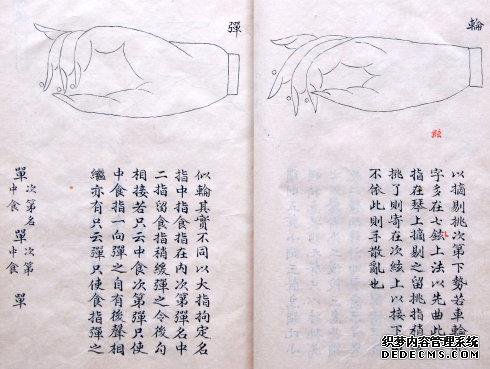 輪
絃
以摘剔挑次第下勢若車輪
字多在七絃上法以先曲此
指在琴上摘剔之留挑指稍
挑了則寄在次絃上以接下
不依此則手散亂也
彈
似輪其實不同以大指拘定名
指中指食指在內次第彈名中
二指留食指稍緩彈之令後勾
相接若只云中食次第彈只使
中食指一向彈之自有後聲相
繼亦有只云彈只使食指彈之
單 次第名中食 單 次第中食 單
织梦内容管理系统
DEDECMS.COM